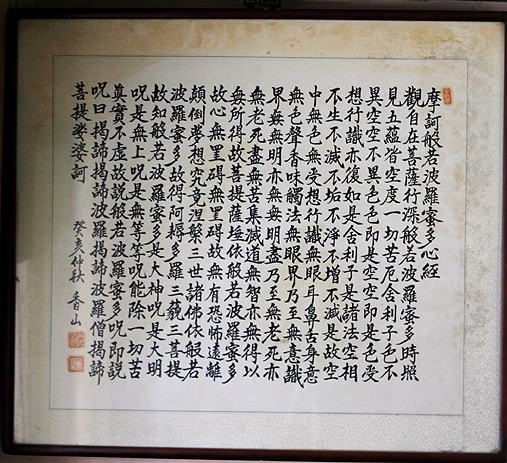 摩訶般若波羅蜜多心經
觀自在菩薩行深般若波羅蜜多時照
見五蘊皆空度一切苦厄舍利子色不
異空空不異色色即是空空即是色受
想行識亦復如是舍利子是諸法空相
不生不滅不垢不淨不增不減是故空
中無色無受想行識無眼耳鼻舌身意
無色聲香味觸法無眼界乃至無意識
界無無明亦無無明盡乃至無老死亦
無老死盡無苦集滅道無智亦無得以
無所得故菩提薩埵依般若波羅蜜多
故心無罣碍無罣碍故無有恐怖遠離
顛倒夢想究竟涅槃三世諸佛依般若
波羅蜜多故得阿耨多羅三藐三菩提
故知般若波羅蜜多是大神呪是大明
呪是無上呪是無等等呪能除一切苦
真實不虛故說般若波羅蜜多呪即說
呪曰揭諦揭諦波羅揭諦波羅僧揭諦
菩提娑婆訶 癸亥仲秋 香山